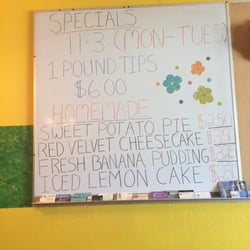 SPECIALS
11-3 (MON-TUES)
1 POUND TIPS
$6.00
HOMEMADE
SWEET POTATO PIE $2.50
RED VELVET CHEESECAKE
FRESH BANANA PUDDING
ICED LEMON CAKE